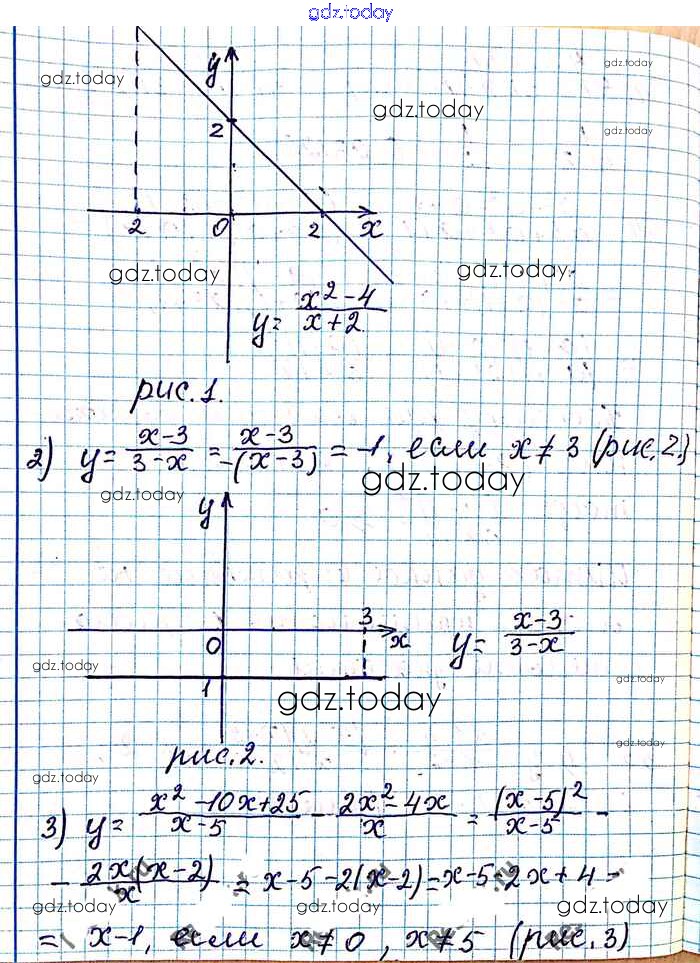 gdz.today
gdz.today
gdz.today
gdz.today
gdz.today
y
2
2 0 2 x
gdz.today
gdz.today
y = \frac{x^2-4}{x+2}
рис. 1.
2) y = \frac{x-3}{3-x} = \frac{x-3}{-(x-3)} = -1, если x ≠ 3 (рис. 2.)
gdz.today
gdz.today
y
3
0 x
y = \frac{x-3}{3-x}
gdz.today
gdz.today
1
gdz.today
gdz.today
рис. 2.
gdz.today
3) y = \frac{x^2-10x+25}{x-5} - \frac{2x^2-4x}{x} = \frac{(x-5)^2}{x-5} -
- \frac{2x(x-2)}{x} = x-5-2(x-2) = x-5-2x+4 =
gdz.today
gdz.today
gdz.today
= x-1, если x ≠ 0, x ≠ 5 (рис. 3)